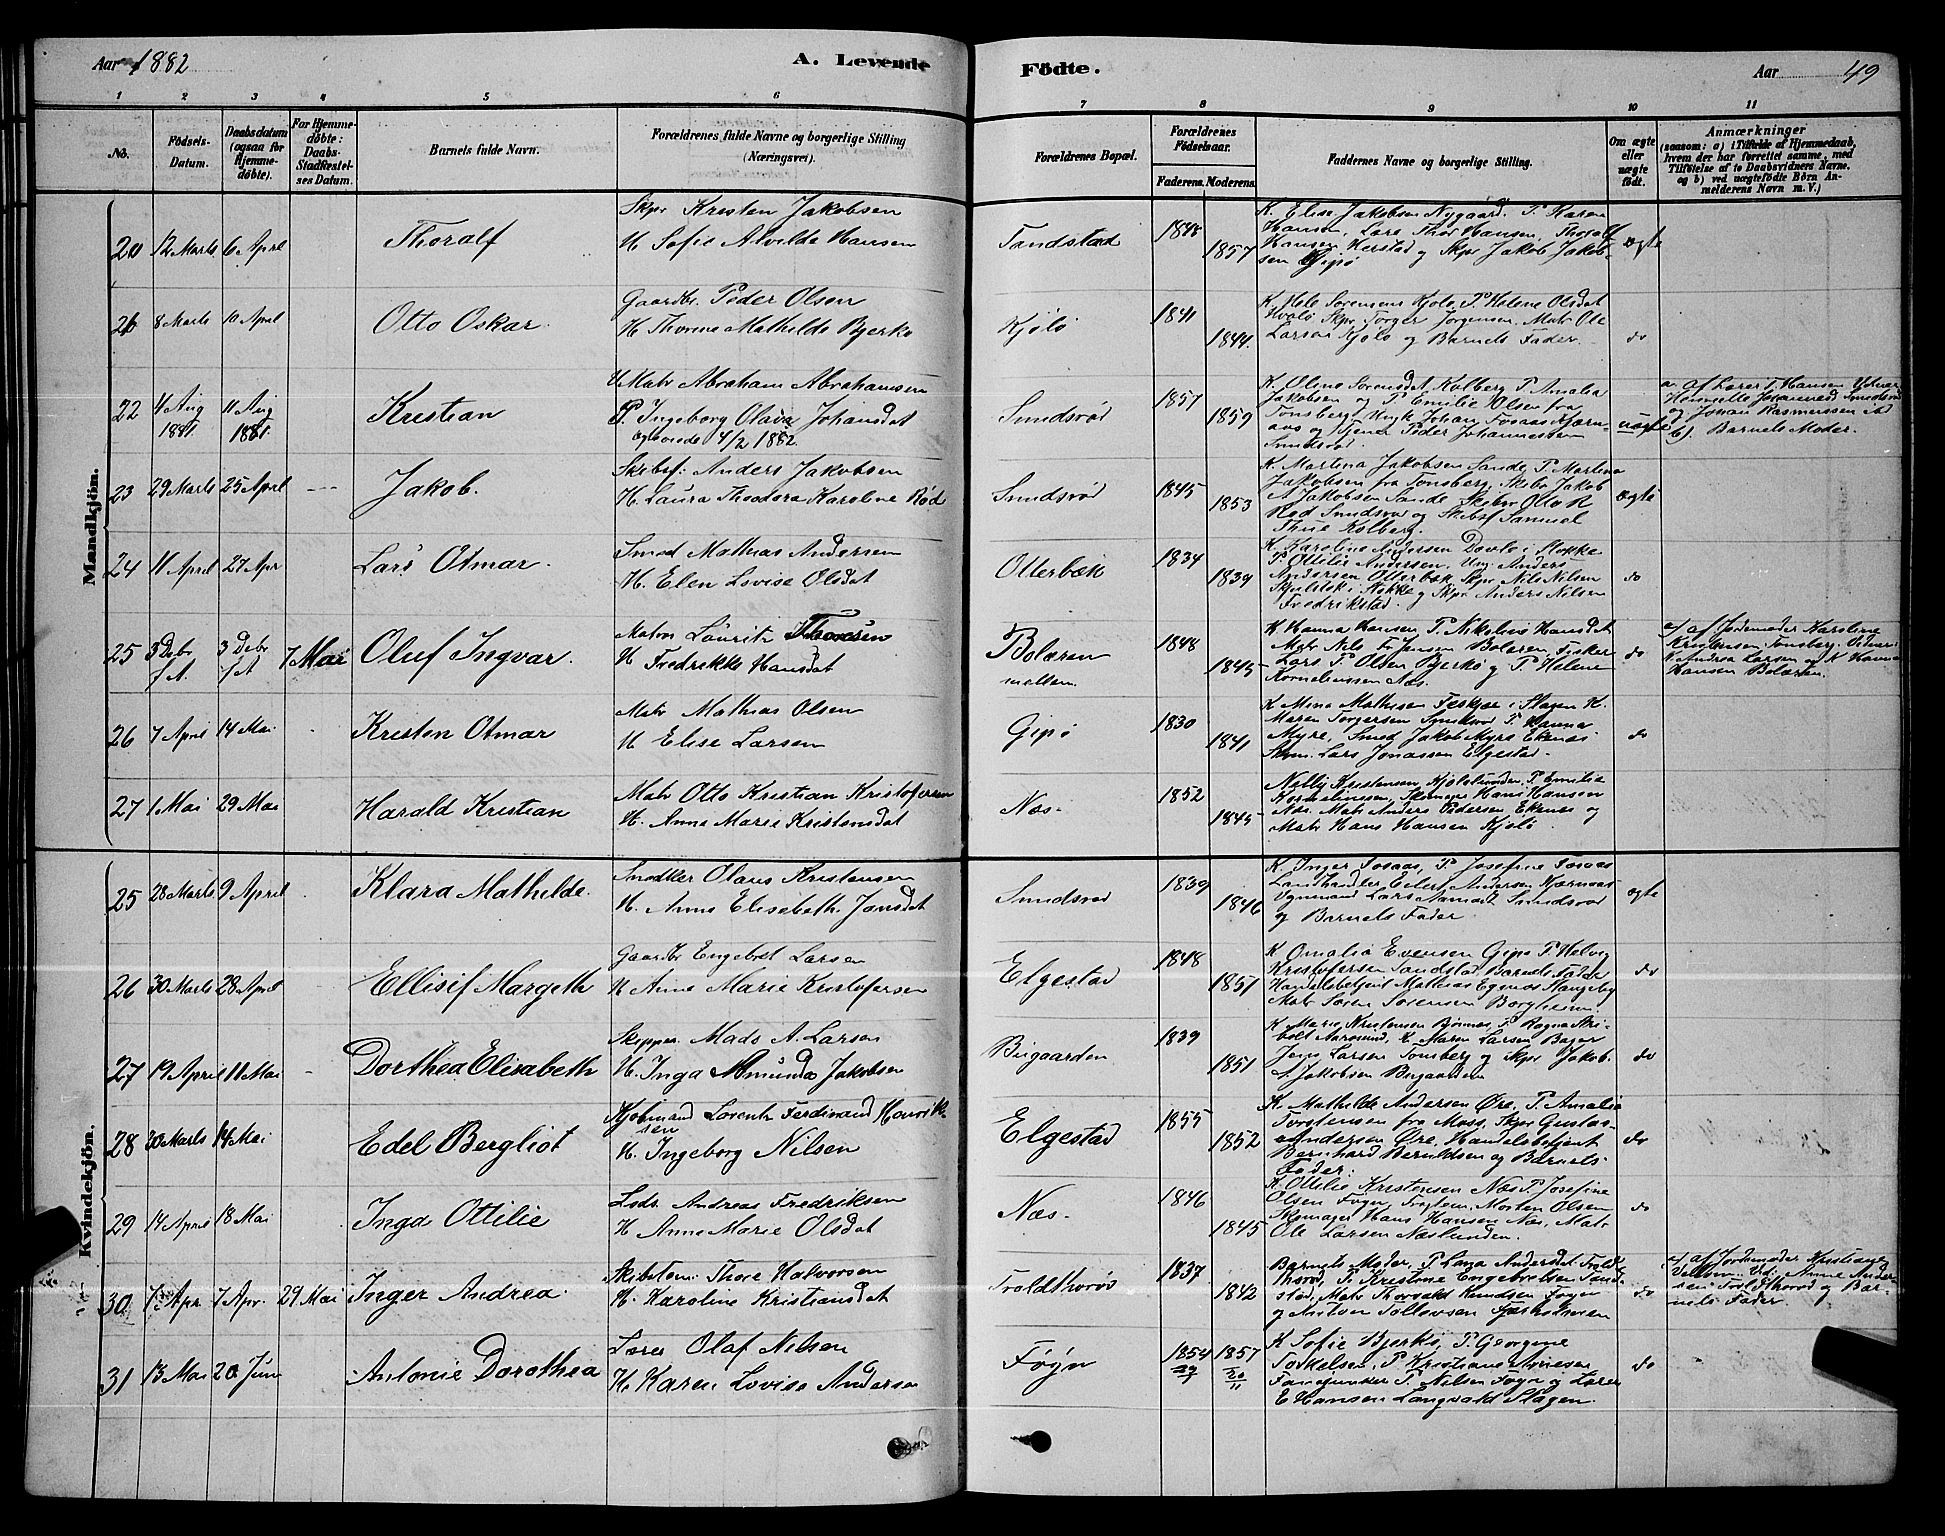 Aar 1882
A. Levende Födte.
Aar 49
1 2 3 4 5 6 7 8 9 10 11
No.
Fødsels-Datum.
Daabsdatum (ogsaa for Hjemme-døbte).
For Hjemme-døbte: Daabs-Stadfæstel-ses Datum.
Barnets fulde Navn.
Forældrenes fulde Navne og borgerlige Stilling (Næringsvei).
Forældrenes Bopæl.
Forældrenes Fødselsaar.
Faderens. Moderens.
Faddernes Navne og borgerlige Stilling.
Om ægte eller uægte født.
Anmærkninger
(saasom: a) i Tilfælde af Hjemmedaab, hvem der har forrettet samme, med Tilføielse af to Daabsvidners Navne, og b) ved uægtefødte Börn An-melderens Navn m. V.)
Mandkjön.
20 12 Marts 6 April Thoralf
Skpr Kristen Jakobsen
H. Sofie Alvilde Hansen
Tandstad 1848 1857
K. Elise Jakobsen Nygaard. P. Karen
Hansen, Lars Thor Hansen, Thoralf
Hansen Herstad og Skpr Jakob Jakob-
sen Gipø
ægte
21 8 Marts 10 April Otto Oskar.
Gaardbr. Peder Olsen
H. Thomine Mathilde Bjerkø
Kjøló 1841 1844.
K. Hele Sørensen Kjøló, P. Helene Olsdat
Hvaló Skpr Torger Jørgensen, Matr Ole
Larsen Kjøló og Barnets Fader.
do
22 4 Aug 1881. 11 Aug 1881. Kristian
U Matr Abraham Abrahamsen
P. Ingeborg Olava Johansdat
egteviede 4/2 1882.
Smidsrød 1857 1859
K. Oline Sorensdat, Kolberg P. Amalia
Jakobsen og P Emilie Olsen fra
Tønsberg Ungk Johan Fosaas Kjærn-
aas og Tjener Peder Johannessen
Smidsrød.
uægte
a. af Lærer T. Hansen Vidner
Henriette Johannesd Smidsrød
og Johan Rasmussen ibd
b). Barnets Moder.
23 29 Marts 25 April Jakob.
Skibsf: Anders Jakobsen
H. Laura Theodora Karoline Rød
Smidsrød 1845 1853
K. Martina Jakobsen Sande, P. Martina
Jakobsen fra Tønsberg, Skibr Jakob
A Jakobsen Sande Skibsr Olo R
Rød Smidsrød og Skibsf Samuel
Thue Kolberg.
ægte
24 11 April 27 Apr Lars Otmar.
Smed Mathias Andersen
H. Elen Lovise Olsdat
Otterbæk 1834 1839
K. Karoline Andersen Døvle i Stokke
P. Ottilie Andersen, Ung. Anders
Andersen Otterbæk Skpr Nils Nilsen
Skjelstok i Stokke og Skpr Anders Nilsen
Fredrikstad.
do
25 3 Debr f.A. 3 Debr f.A 7 Mai Oluf Ingvar.
Matro Lauritz Thoresen
H Fredrikke Hansdat
Bolæren mellem. 1848 1845
K Hanna Hansen P. Nikoline Hansdat
Matr Nils F. Jensen Bolæren, Fisker
Lars P. Olsen Bjerkø og P. Helene
Korneliussen Næs.
do
a/ af Jordmoder Karoline
Kristensen Tønsberg. Vidner:
K Andrea Larsen og K Hanna
Hansen Bolæren.
26 7 April 14 Mai Kristen Otmar
Matr Mathias Olsen
H Elise Larsen
Gipø 1830 1841
K Mina Mathisen Feskjær i Slagen K.
Maren Torgersen Smidsrød P. Hanna
Myre, Smed Jakob Myre Ekenes
Skm. Lars Jonassen Elgestad.
do
27 1 Mai 29 Mai Harald Kristian
Matr Otto Kristian Kristofersen
H. Anne Marie Kristensdat
Næs. 1852 1845
Nelly Kristensen Kjølelunden, P. Emilie
Korneliussen, Skomager Hans Hansen
Næs. Matr Anders Pedersen Ekenes og
Matr Hans Hansen Kjøló.
Kvindekjön.
25 28 Marts 9 April Klara Mathilde.
Snedker Olaus Kristensen
H. Anne Elisabeth Jonsdat
Smidsrød 1839 1846
K. Inger Fosaas, P. Josefine Fosaas
Landhandler Edert Andersen Kjærnaas
Vognmand Lars Aamodt Smidsrød
og Barnets Fader
ægte
26 30 Marts 28 April Ellisif Margeth
Gaardbr Engebret Larsen
H Anne Marie Kristofersen
Elgestad 1848 1851
K Omalia Evensen Gipø P. Helvig
Kristofersen Tandstad, Barnets Fader
Handelsbetjent Mathias Egenæs Slangeby
Matr Søren Sørensen Borgheim.
do
27 19 April 11 Mai Dorthea Elisabeth
Skipper Mads A. Larsen
H. Inga Amunda Jakobsen
Bugaarden 1839 1851
K Marie Kristensen Bjønnes, P. Ragna Ani-
bolt Aarøsund, K. Maren Larsen Bager
Jens Larsen Tonsberg og Skpr Jakob
A Jakobsen Bugaarden
do
28 20 Marts 14 Mai Edel Bergliot
Kjøbmand Lorentz Ferdinand Henrik-
sen
H. Ingeborg Nilsen
Elgestad 1855 1852
K. Mathilde Andersen Øre, P. Amalie
Torstensen fra Moss, Skpr Gustav
Andersen Øre, Handelsbetjent
Bernhard Berntdsen og Barnets
Fader.
do
29 14 April 18 Mai Inga Ottilie
Lods. Andreas Fredriksen
H Anne Marie Olsdat
Næs. 1846 1845
K. Ottilie Kristensen Næs P. Josefine
Olsen Føyn Fregtem. Morten Olsen
Skomager Hans Hansen Næs, Matr
Ole Larsen Næslunden.
do
30 7 Apr 7 Apr. 29 Mai Inger Andrea.
Skibstøm: Thore Halvorsen
H. Karoline Kristiansdat
Troldthorød 1837 1842
Barnets Moder, P. Lina Andersdat Troldt-
horød, P. Kristine Engebretsen Tand-
stad, Matr Thorvald Knudsen Føyn
og Anton Tollevsen Fjærholmen
do
a/ af Jordmoder Kristiane
Vellsen. Vid: Anne Ander-
sen Troldthorød og Bar-
nets Fader.
31 13 Mai 20 Juni Antonie Dorothea
Lærer Olaf Nilsen
H. Karen Lovise Andersen
Føyn 1854 29/7 1857 20/11
K Sofie Bjerkø, P. Georgine
Torkelsen, P Kristiane Arnesen
Fanejunker P. Nilsen Føyn og Lærer
E Hansen Langvald Slagen.
do